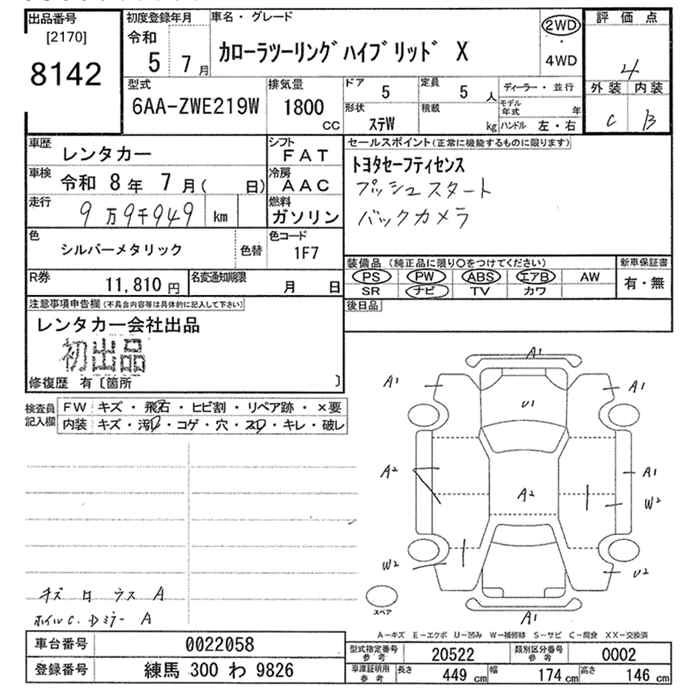 出品番号
[2170]
8142
初度登録年月
令和
5 7月
車名・グレード
カローラツーリングハイブリッド X
2WD
4WD
評価点
4
外装 内装
C B
型式
6AA-ZWE219W
排気量
1800 cc
ドア 5
定員 5 人
形状 ステW
積載 kg
ディーラー・並行
モデル年式 年
ハンドル 左・右
車歴 レンタカー
シフト FAT
車検 令和 8年 7月( 日)
冷房 AAC
走行 9万9千949 km
燃料 ガソリン
色 シルバーメタリック 色替
色コード 1F7
R券 11,810円
名変通知期限 月 日
セールスポイント(正常に機能するものに限ります)
トヨタセーフティセンス
プッシュスタート
バックカメラ
装備品(純正品に限り○をつけてください)
新車保証書
PS PW ABS エアB AW
SR ナビ TV カワ
有・無
後日品
注意事項申告欄(不具合内容等は具体的に記入して下さい)
レンタカー会社出品
初出品
修復歴 有〔箇所 〕
検査員記入欄
FW キズ・飛石・ヒビ割・リペア跡・×要
内装 キズ・汚・コゲ・穴・スレ・キレ・破レ
A1
A1 A1
U1
A2 A1
A2
W2
W2 U2
A1
スペア
A-キズ E-エクボ U-凹み W-補修跡 S-サビ C-腐食 XX-交換済
車台番号 0022058
登録番号 練馬 300 わ 9826
型式指定番号 参考 20522
類別区分番号 参考 0002
車庫証明用 参考
長さ 449 cm
幅 174 cm
高さ 146 cm